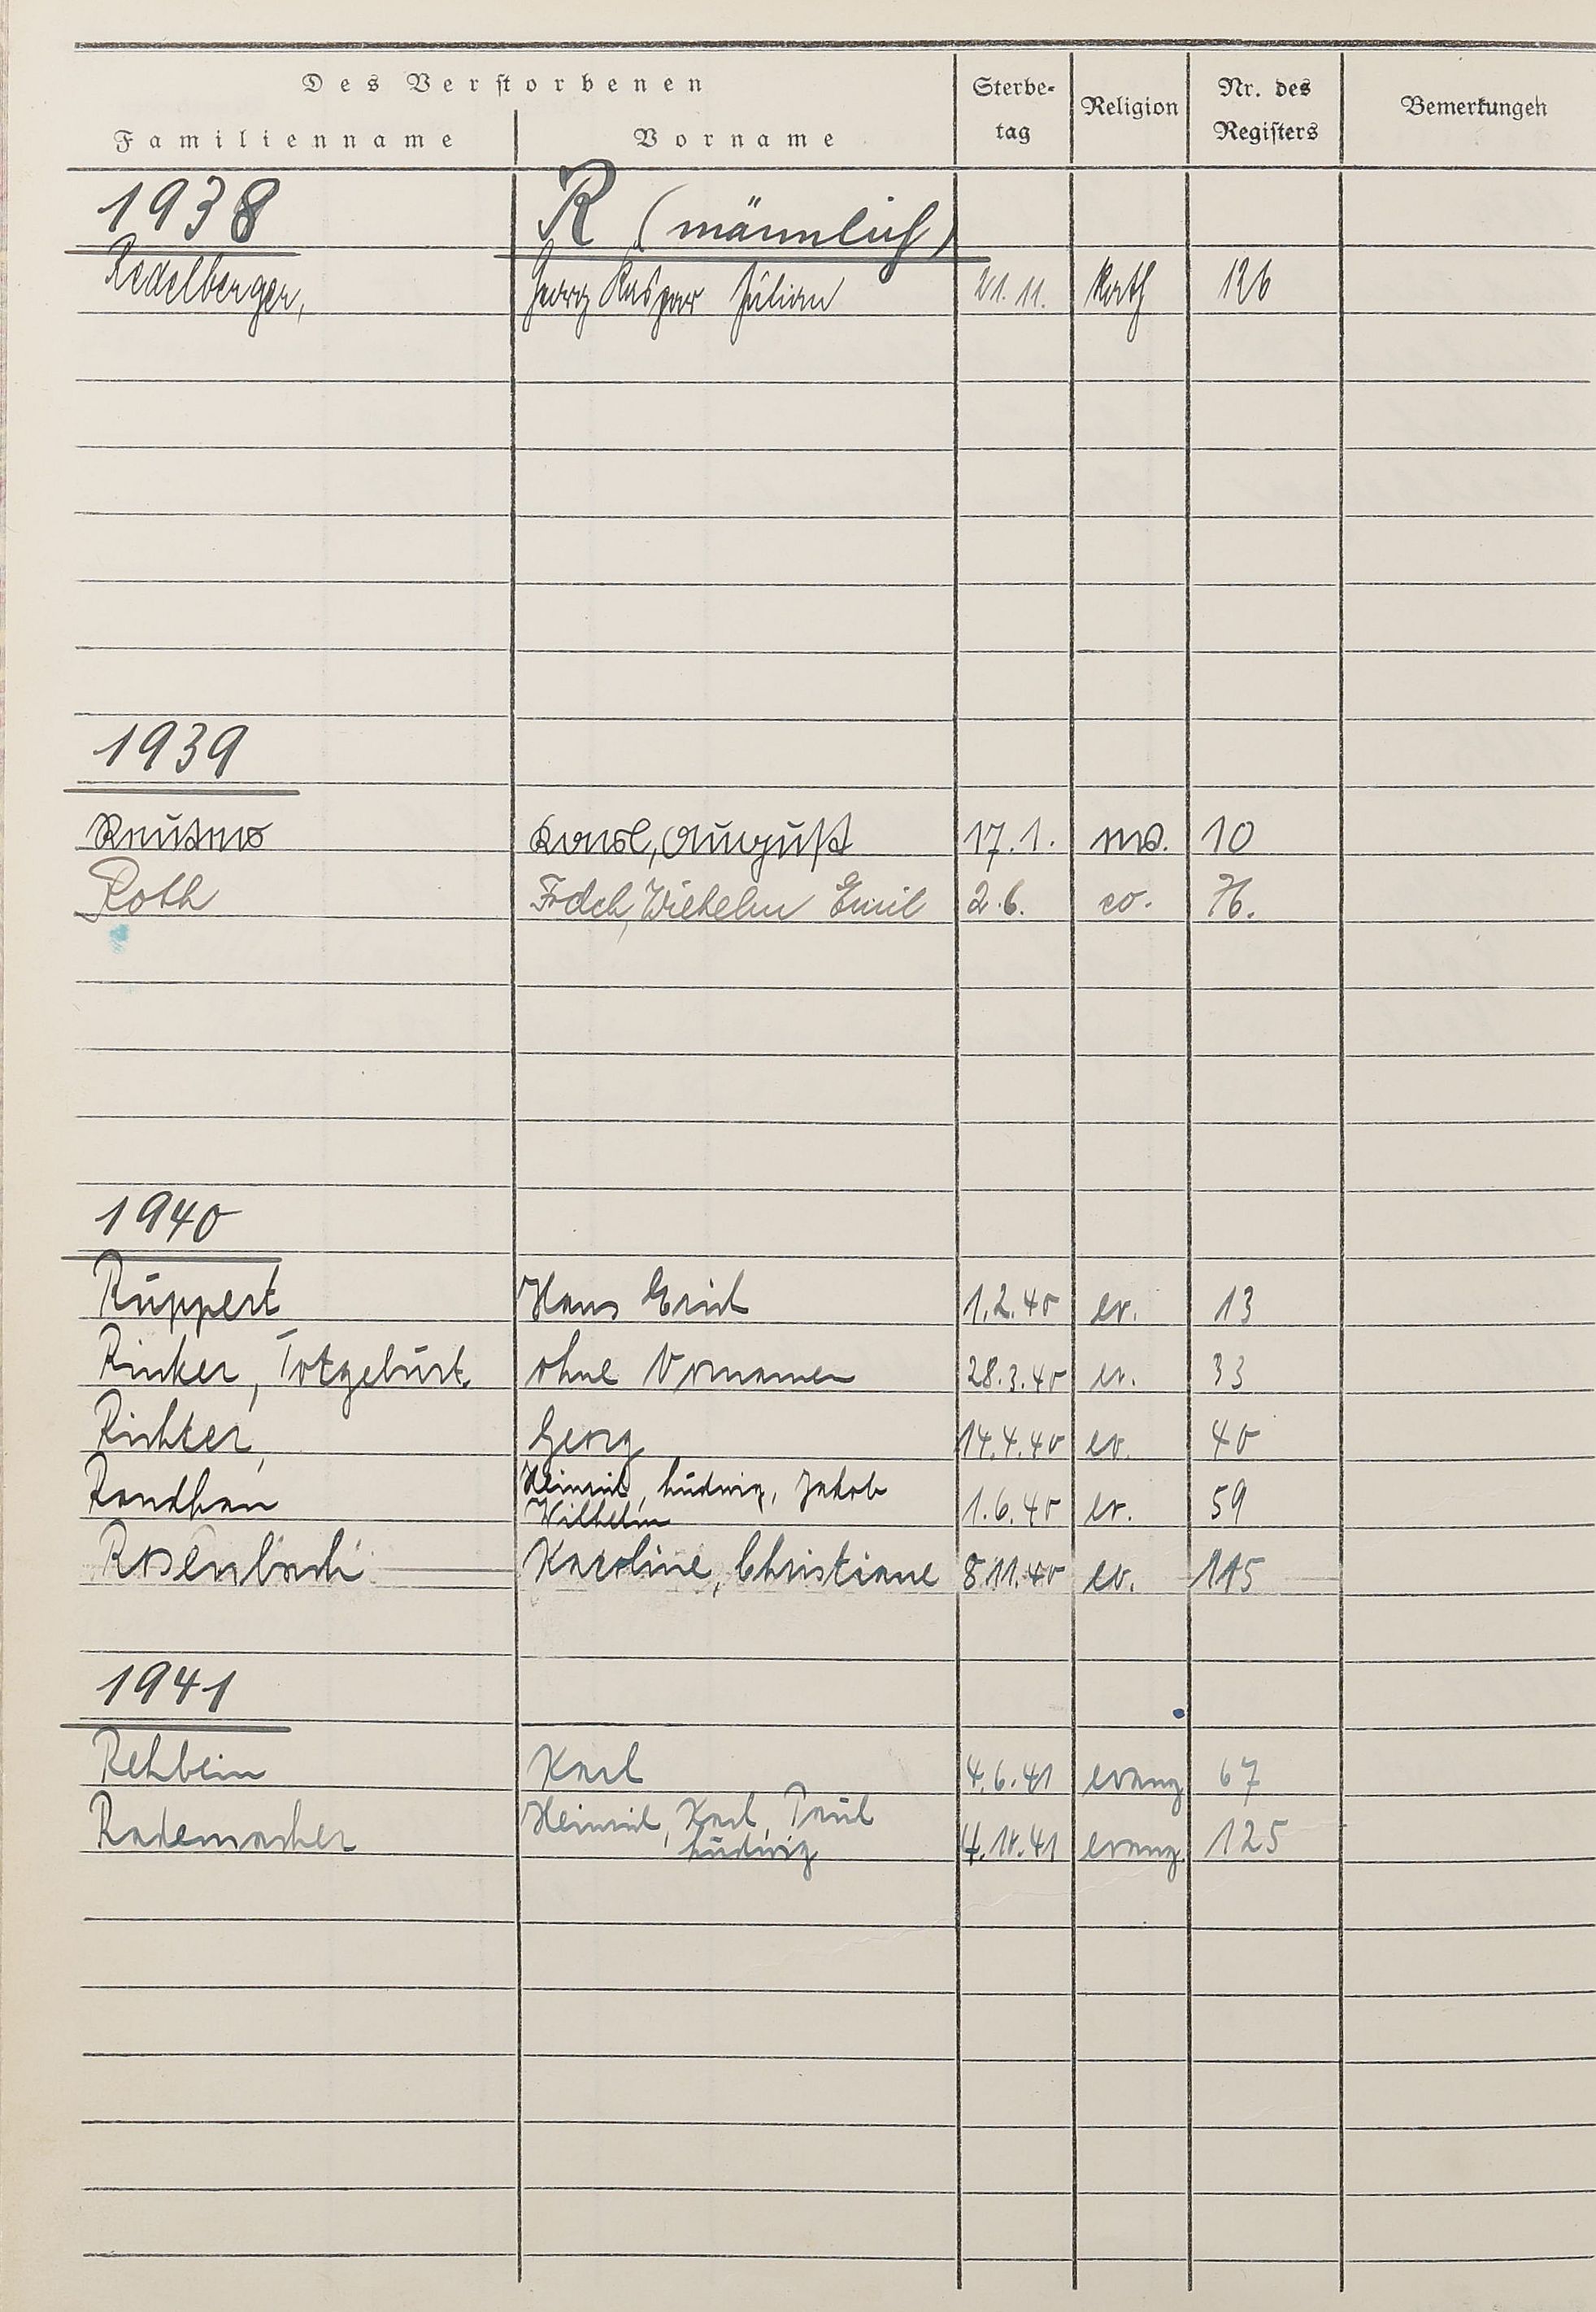 Des Verstorbenen
Familienname Vorname Sterbe-tag Religion Nr. des Registers Bemerkungen
1938 R (männlich)
Redelberger, Georg Kaspar Julian 21.11. Kath 126
1939
Karl, August 17.1. ev. 10
Roth Frdch, Wilhelm Emil 2.6. ev. 76.
1940
Ruppert Hans Erich 1.2.40 ev. 13
Rinker, Totgeburt ohne Vornamen 28.3.40 ev. 33
Richter, Georg 14.4.40 ev. 40
Heinrich, Ludwig, Jakob
Wilhelm 1.6.40 ev. 59
Rosenbach Karoline, Christiane 8.11.40 ev. 115
1941
Rehbein Karl 4.6.41 evang 67
Rademacher Heinrich, Karl, Paul
Ludwig evang. 125